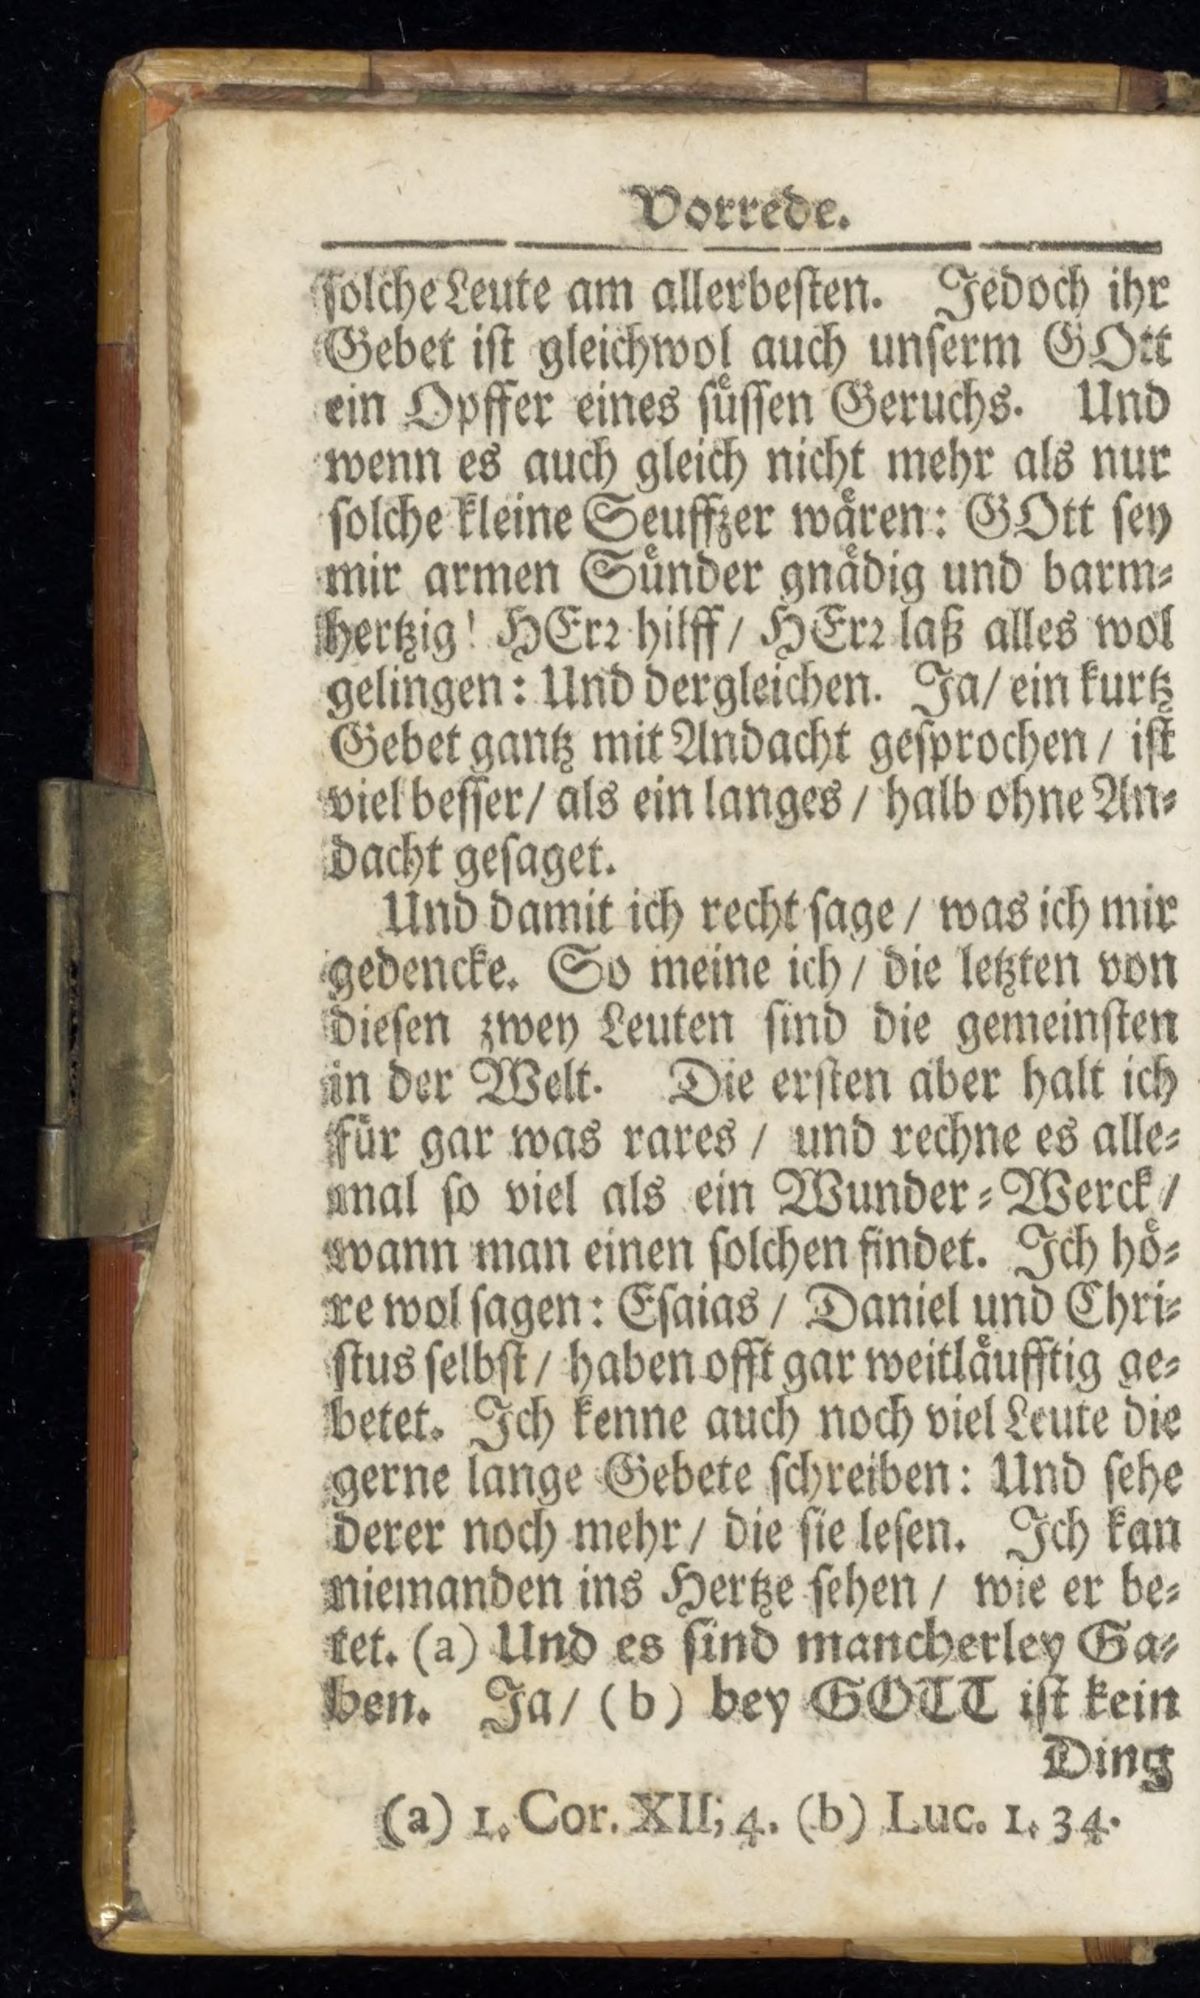 Vorrede.
ſolche Leute am allerbeſten. Jedoch ihr
Gebet iſt gleichwol auch unſerm GOtt
ein Opffer eines ſuͤſſen Geruchs. Und
wenn es auch gleich nicht mehr als nur
ſolche kleine Seuffzer waͤren: GOtt ſey
mir armen Suͤnder gnaͤdig und barm⸗
hertzig! HErꝛ hilff / HErꝛ laß alles wol
gelingen: Und dergleichen. Ja/ ein kurtz
Gebet gantz mit Andacht geſprochen / iſt
viel beſſer/ als ein langes / halb ohne An⸗
dacht geſaget.
Und damit ich recht ſage / was ich mir
gedencke. So meine ich / die letzten von
dieſen zwey Leuten ſind die gemeinſten
in der Welt. Die erſten aber halt ich
fuͤr gar was rares / und rechne es alle⸗
mal ſo viel als ein Wunder⸗Werck /
wann man einen ſolchen findet. Ich hoͤ⸗
re wol ſagen: Eſaias / Daniel und Chri⸗
ſtus ſelbſt / haben offt gar weitlaͤufftig ge⸗
betet. Ich kenne auch noch viel Leute die
gerne lange Gebete ſchreiben: Und ſehe
derer noch mehr / die ſie leſen. Ich kan
niemanden ins Hertze ſehen / wie er be⸗
tet. (a) Und es ſind mancherley Ga⸗
ben. Ja / (b) bey GOTT iſt kein
Ding
(a) 1. Cor. XII; 4. (b) Luc. 1. 34.